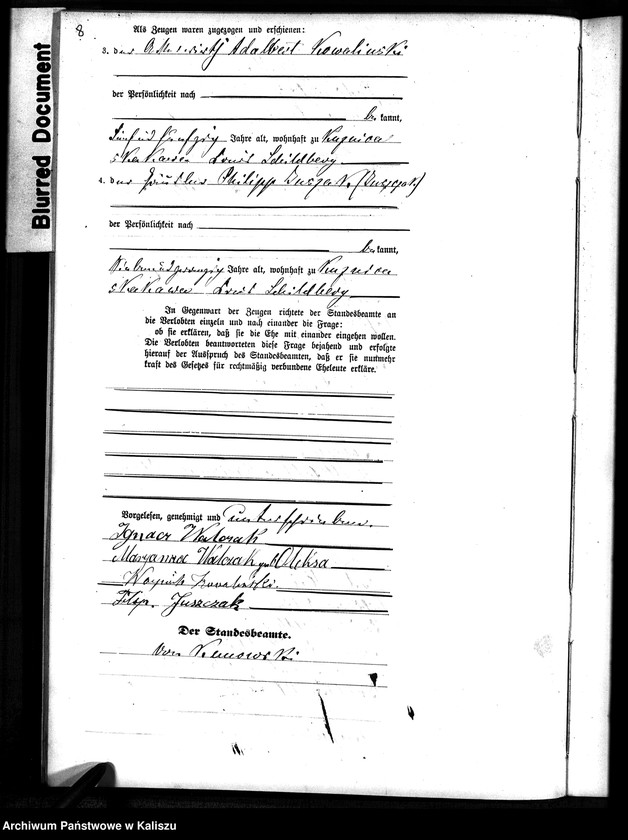 8
Als Zeugen waren zugezogen und erschienen:
3. der Adalbert Kowalinski
der Persönlichkeit nach
be kannt,
fünf und fünfzig Jahre alt, wohnhaft zu Kuznica
skakawa Kreis Schildberg
4. der Häusler Philipp Juszak (Juszczak)
der Persönlichkeit nach
be kannt,
sieben und zwanzig Jahre alt, wohnhaft zu Kuznica
skakawa Kreis Schildberg
In Gegenwart der Zeugen richtete der Standesbeamte an
die Verlobten einzeln und nach einander die Frage:
ob sie erklären, daß sie die Ehe mit einander eingehen wollen.
Die Verlobten beantworteten diese Frage bejahend und erfolgte
hierauf der Ausspruch des Standesbeamten, daß er sie nunmehr
kraft des Gesetzes für rechtmäßig verbundene Eheleute erkläre.
Vorgelesen, genehmigt und unterschrieben.
Ignacz Walczak
Maryanna Walczak
Kowalinski
Filip Juszczak
Der Standesbeamte.
von
Blurred Document
Archiwum Państwowe w Kaliszu